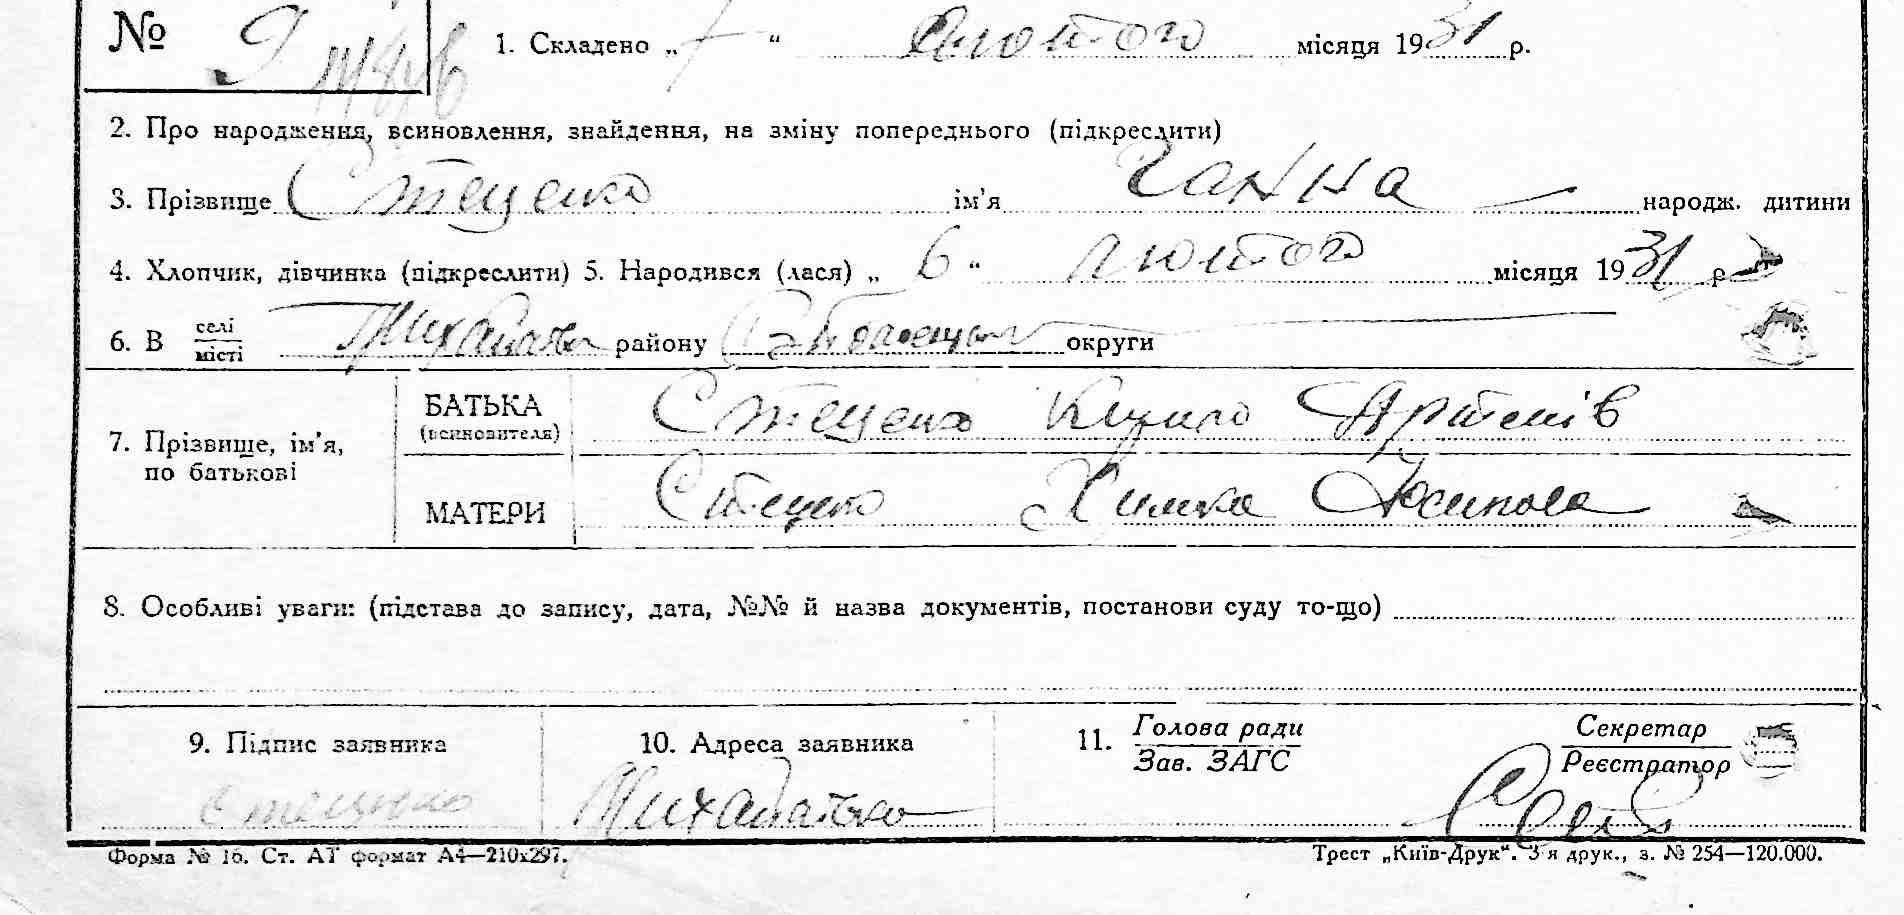 № 9 1. Складено „ 7 “ лютого місяця 1931 р.
2. Про народження, всиновлення, знайдення, на зміну попереднього (підкреслити)
3. Прізвище Стеценко ім’я Ганна народж. дитини
4. Хлопчик, дівчинка (підкреслити) 5. Народився (лася) „ 6 “ лютого місяця 1931 р
6. В селі
місті Михайлівці району округи
7. Прізвище, ім’я,
по батькові
БАТЬКА
(всиновителя)
Стеценко Кирило Артемів
МАТЕРИ
Стеценко Химка Юсипова
8. Особливі уваги: (підстава до запису, дата, №№ й назва документів, постанови суду то-що)
9. Підпис заявника 10. Адреса заявника 11. Голова ради
Зав. ЗАГС
Секретар
Реєстратор
Стеценко Михайлівка
Форма № 16. Ст. АТ формат А4—210х297. Трест „Київ-Друк“. 3 я друк., з. № 254—120.000.